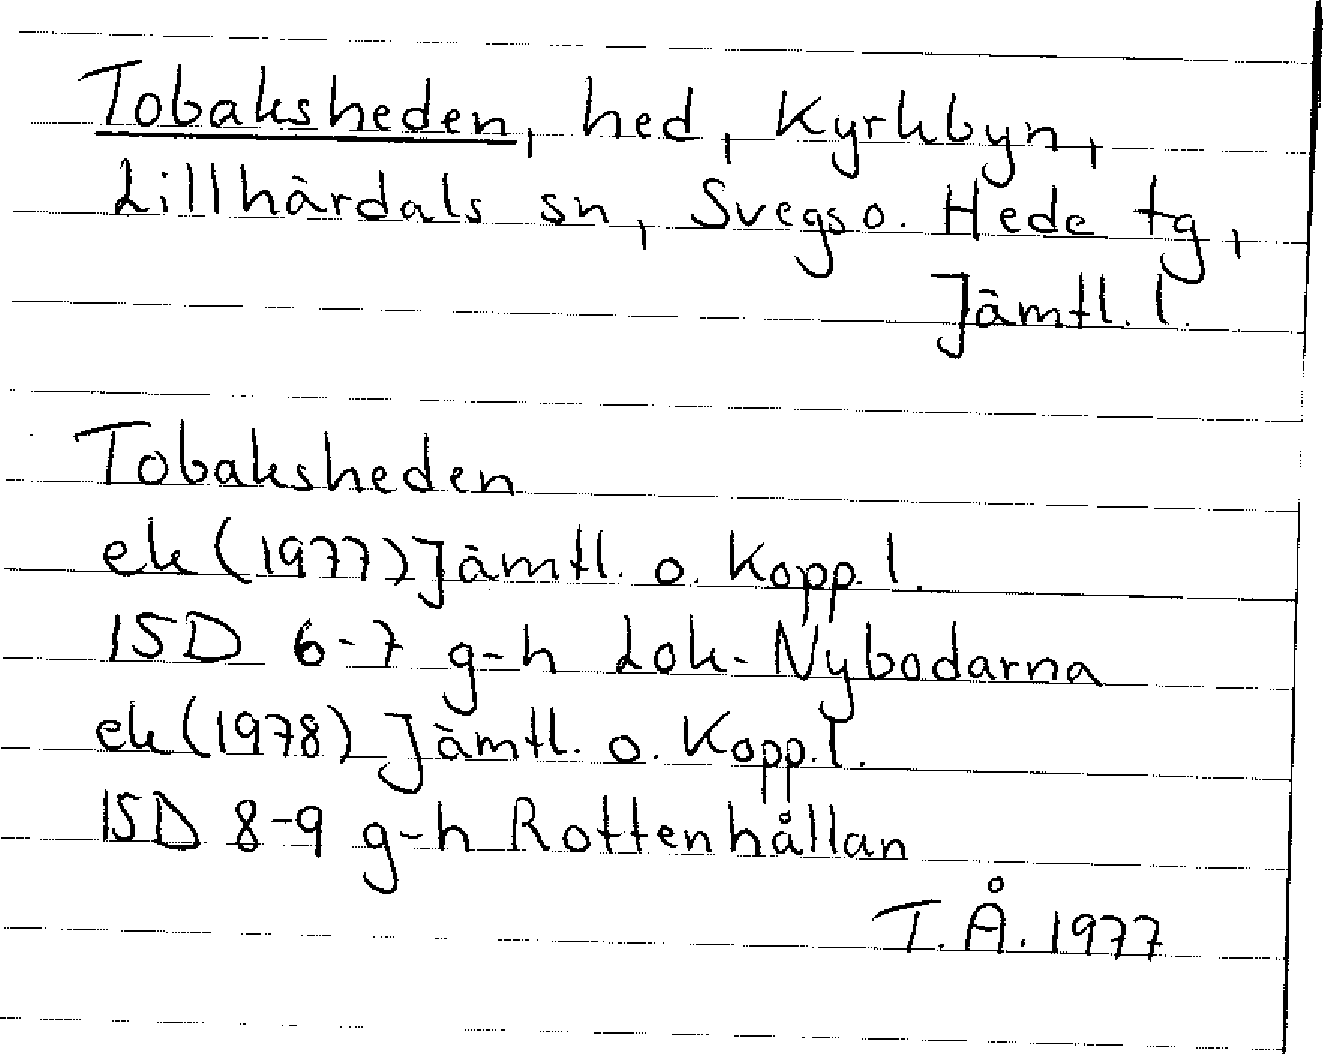 Tobaksheden, hed, Kyrkbyn,
Lillhärdals sn, Svegs o. Hede tg,
Jämtl. l.
Tobaksheden
ek (1977) Jämtl. o. Kopp. l.
15D 6-7 g-h Lok-Nybodarna
ek (1978) Jämtl. o. Kopp. l.
15D 8-9 g-h Rottenhållan
T. Å. 1977